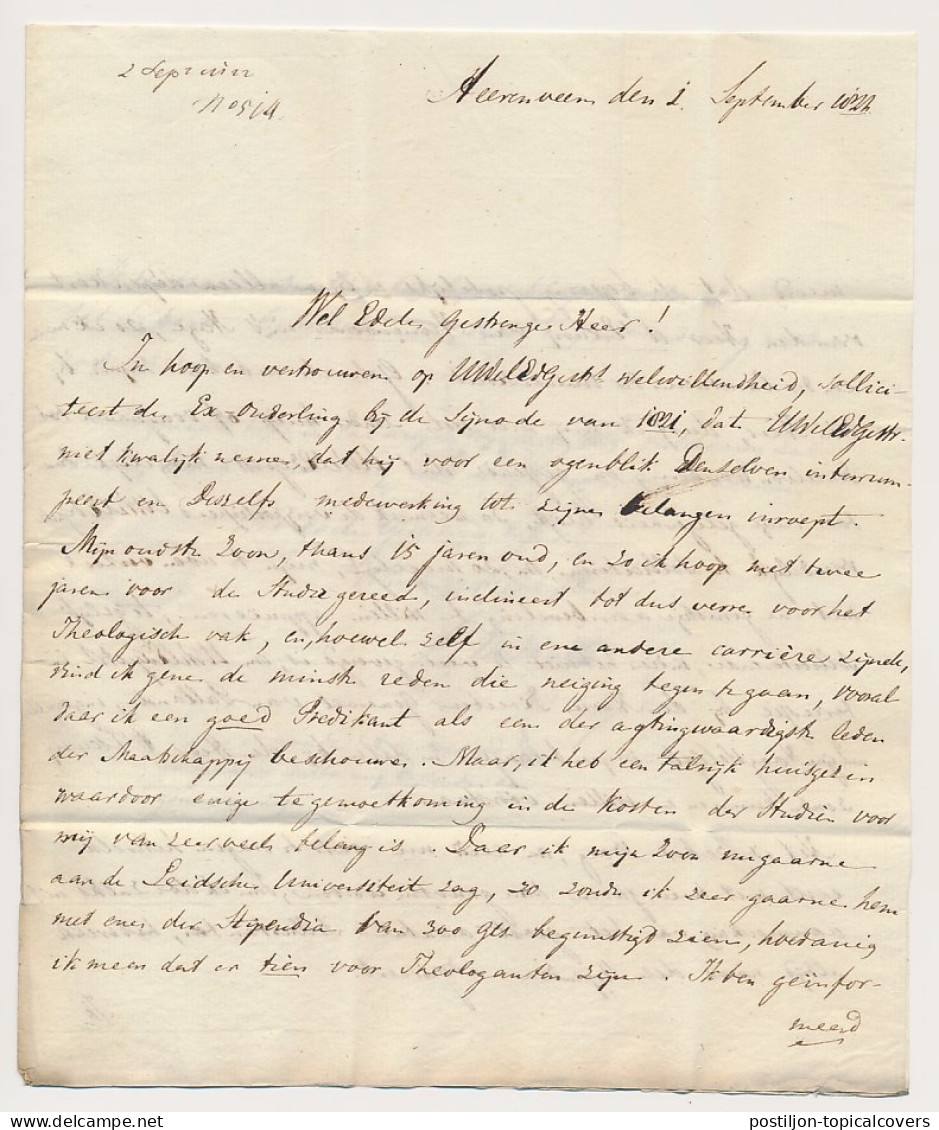 2 Sept
No 514
Heerenveen den 1. September 1822.
Wel Edele Gestrenge Heer!
In hoop en vertrouwen op UWelEdGestr welwillendheid, sollici-
teert de Ex-Ouderling bij de Synode van 1821, dat UWelEdGestr.
niet kwalijk neme, dat hij voor een ogenblik Denzelven interrum-
peert en Deszelfs medewerking tot zijne belangen inroept.
Mijn oudste Zoon, thans 15 jaren oud, en zo ik hoop met twee
jaren voor de Studie gereed, inclineert tot dus verre voor het
Theologisch vak, en, hoewel zelf in ene andere carrière zijnde,
vind ik gene de minste reden die neiging tegen te gaan, vooral
daar ik een goed Predikant als een der agtingwaardigste leden
der Maatschappij beschouwe. Maar, ik heb een talrijk huisgezin
waardoor enige tegemoetkoming in de Kosten der Studien voor
mij van zeer veel belang is. Daar ik mijn Zoon ungaarne
aan de Leidsche Universiteit zag, zo zoude ik zeer gaarne hem
met ene der Stipendia van 300 gls begunstigd zien, hoedanig
ik meen dat er tien voor Theologanten zijn. Ik ben geïnfor-
meerd
postiljon-topicalcovers
https://www.delcampe.net/en_GB/collectibles/store/postiljon-topicalcovers